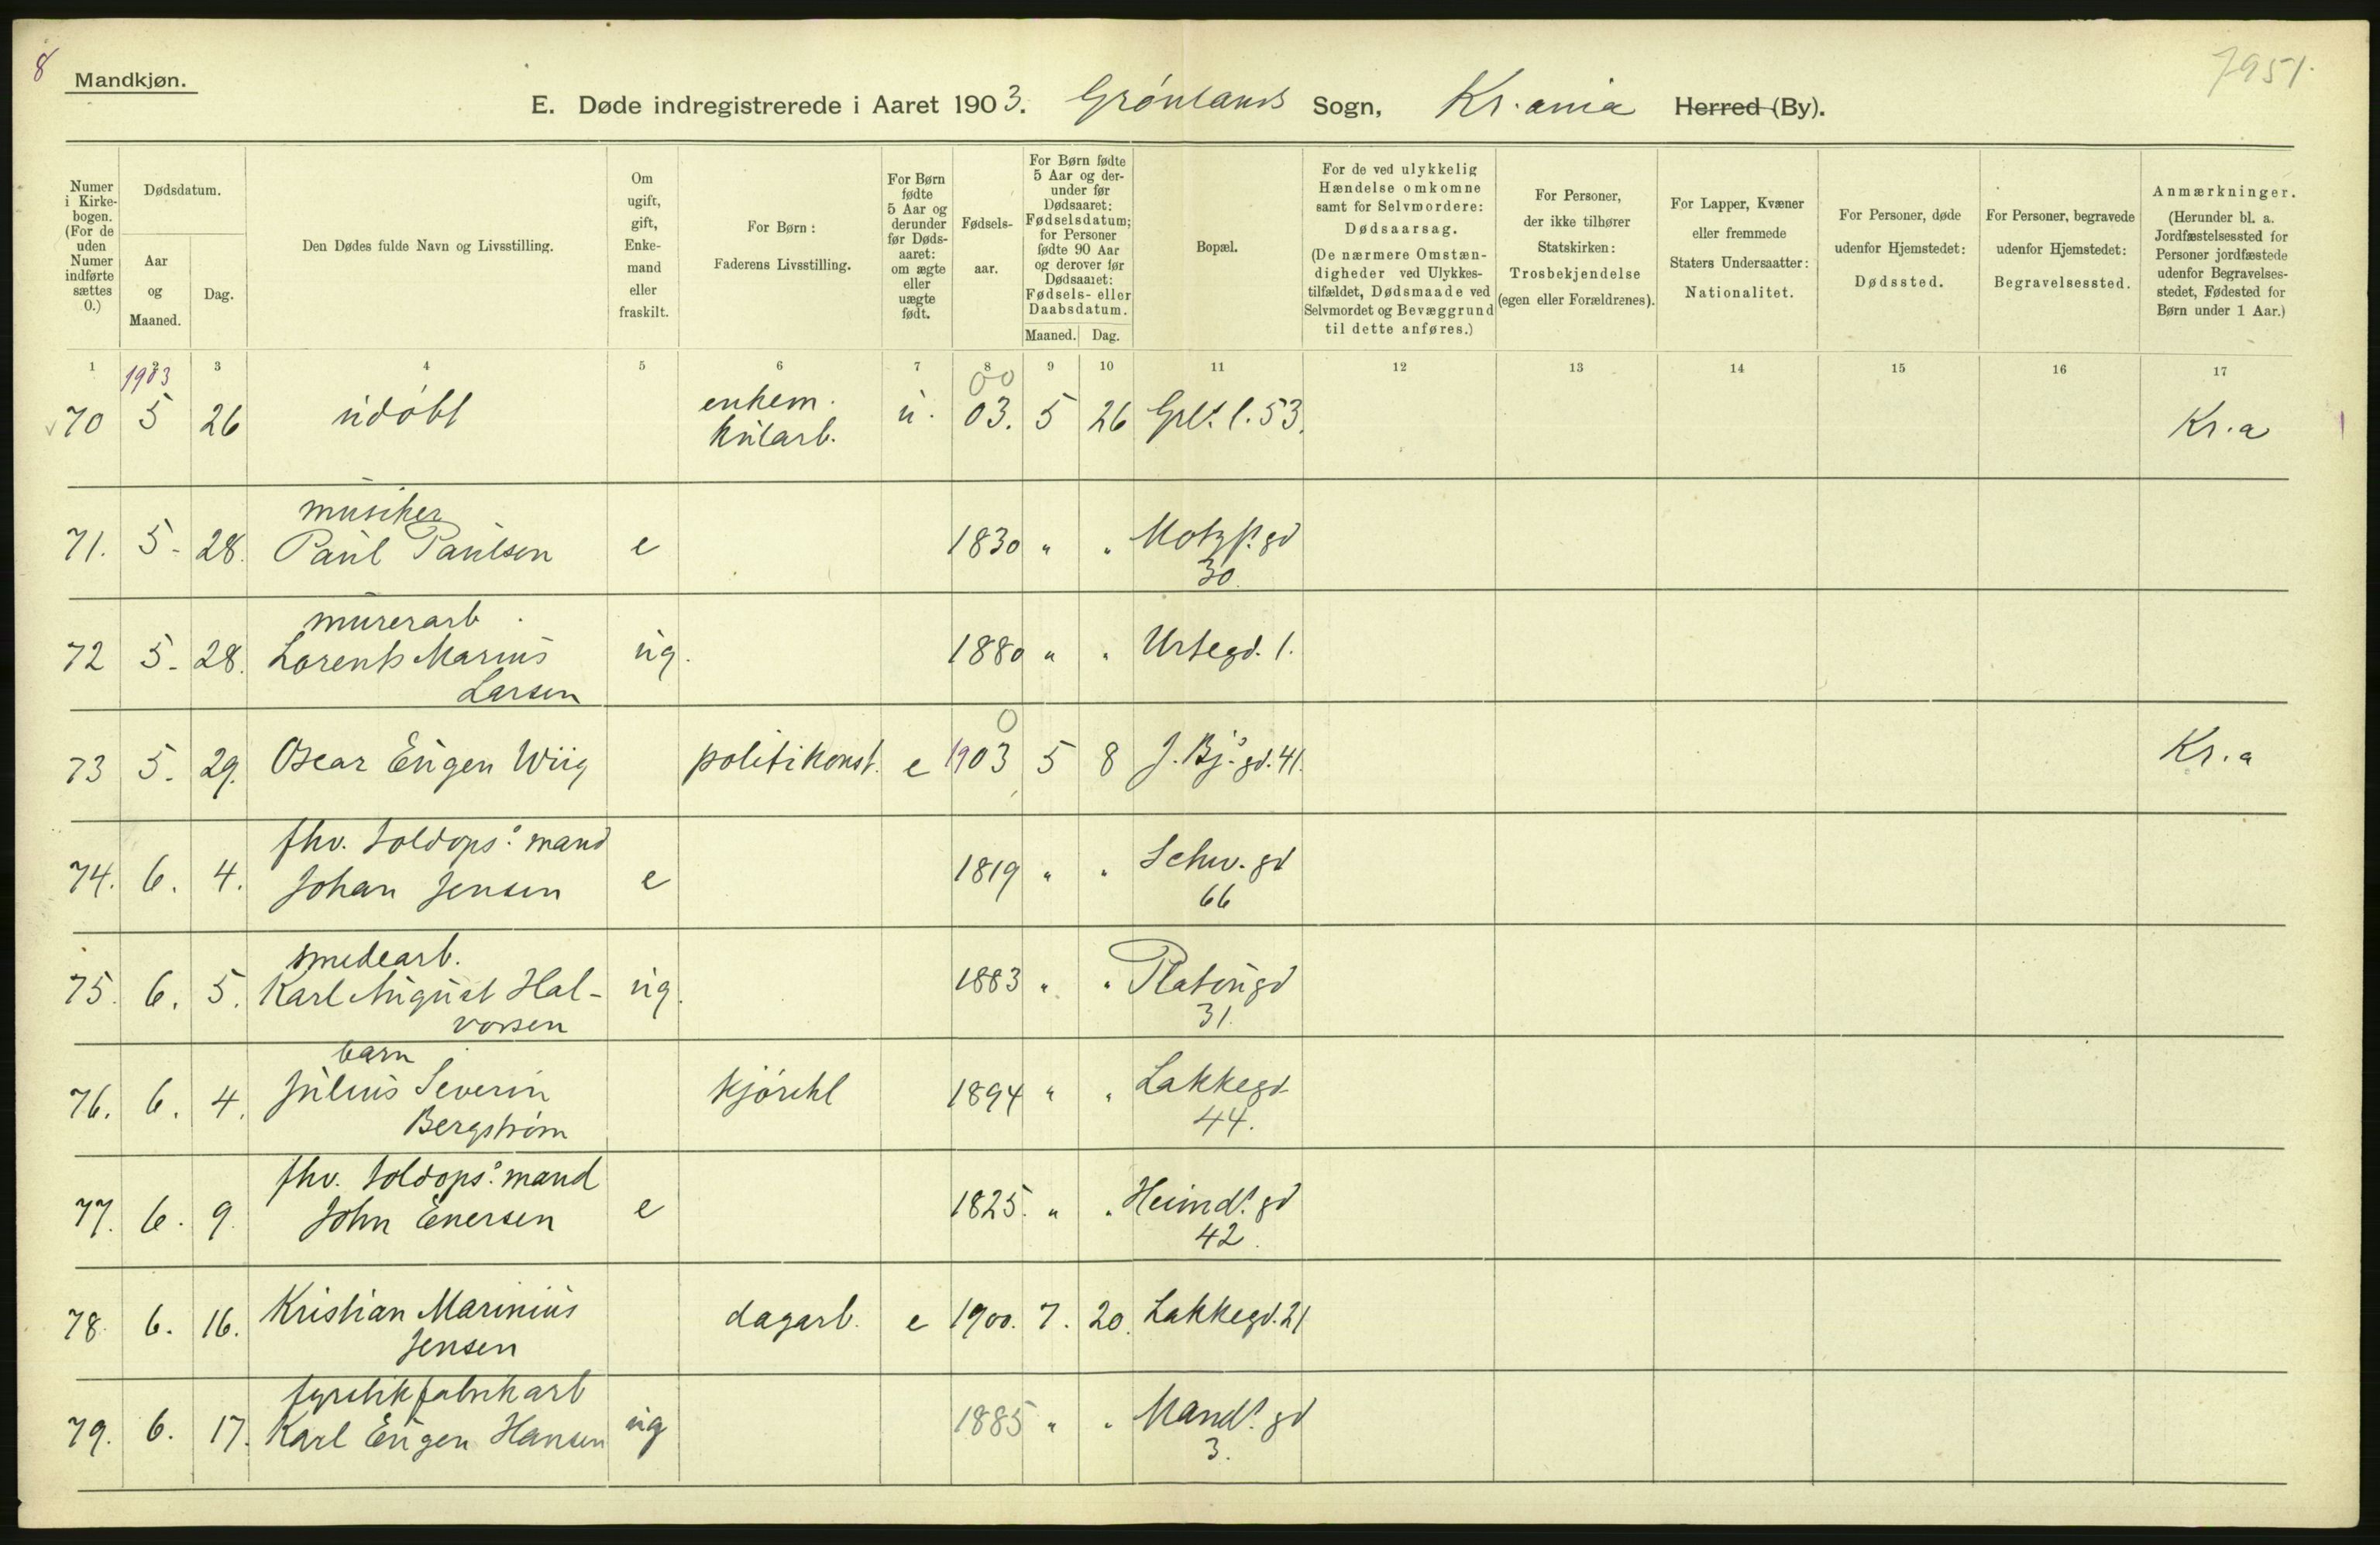 8
Mandkjøn.
7951.
E. Døde indregistrerede i Aaret 1903. Grønlands Sogn, Kr.ania Herred (By).
Numer i Kirkebogen. (For de uden Numer indførte sættes 0.)
Dødsdatum.
Aar og Maaned.
Dag.
Den Dødes fulde Navn og Livsstilling.
Om ugift, gift, Enkemand eller fraskilt.
For Børn: Faderens Livsstilling.
For Børn fødte 5 Aar og derunder før Dødsaaret: om ægte eller uægte født.
Fødselsaar.
For Børn fødte 5 Aar og derunder før Dødsaaret: Fødselsdatum; for Personer fødte 90 Aar og derover før Dødsaaret: Fødsels- eller Daabsdatum.
Maaned. Dag.
Bopæl.
For de ved ulykkelig Hændelse omkomne samt for Selvmordere: Dødsaarsag. (De nærmere Omstændigheder ved Ulykkestilfældet, Dødsmaade ved Selvmordet og Bevæggrund til dette anføres.)
For Personer, der ikke tilhører Statskirken: Trosbekjendelse (egen eller Forældrenes).
For Lapper, Kvæner eller fremmede Staters Undersaatter: Nationalitet.
For Personer, døde udenfor Hjemstedet: Dødssted.
For Personer, begravede udenfor Hjemstedet: Begravelsessted.
Anmærkninger. (Herunder bl. a. Jordfæstelsessted for Personer jordfæstede udenfor Begravelsesstedet, Fødested for Børn under 1 Aar.)
1 2 3 4 5 6 7 8 9 10 11 12 13 14 15 16 17
1903
00
70 5 26 udøbt enkem. kularb. u. 03. 5 26 Grl. l. 53. Kr.a
musiker
71. 5. 28. Paul Paulsen e 1830 " " Motzf. gd
30.
murerarb.
72 5. 28. Lorents Marius ug. 1880 " " Urtegd. 1.
Larsen
0
73 5. 29. Oscar Eugen Wiig politikonst. e 1903 5 8 J. Bj.s gd. 41. Kr.a
fhv. toldops. mand
74. 6. 4. Johan Jensen e 1819 " " Schw. gd
66
smedearb.
75. 6. 5. Karl August Hal- ug. 1883 " " Platougd
vorsen 31.
barn
76. 6. 4. Julius Severin kjørekl 1894 " " Lakkegd
Bergstrøm 44.
fhv. toldops. mand
77. 6. 9. John Enersen e 1825. " " Heimd. gd
42.
78. 6. 16. Kristian Marinius dagarb. e 1900. 7. 20. Lakkegd. 21
Jensen
fyrstikfabrikarb
79. 6. 17. Karl Eugen Hansen ug 1885 " " Mand. gd
3.